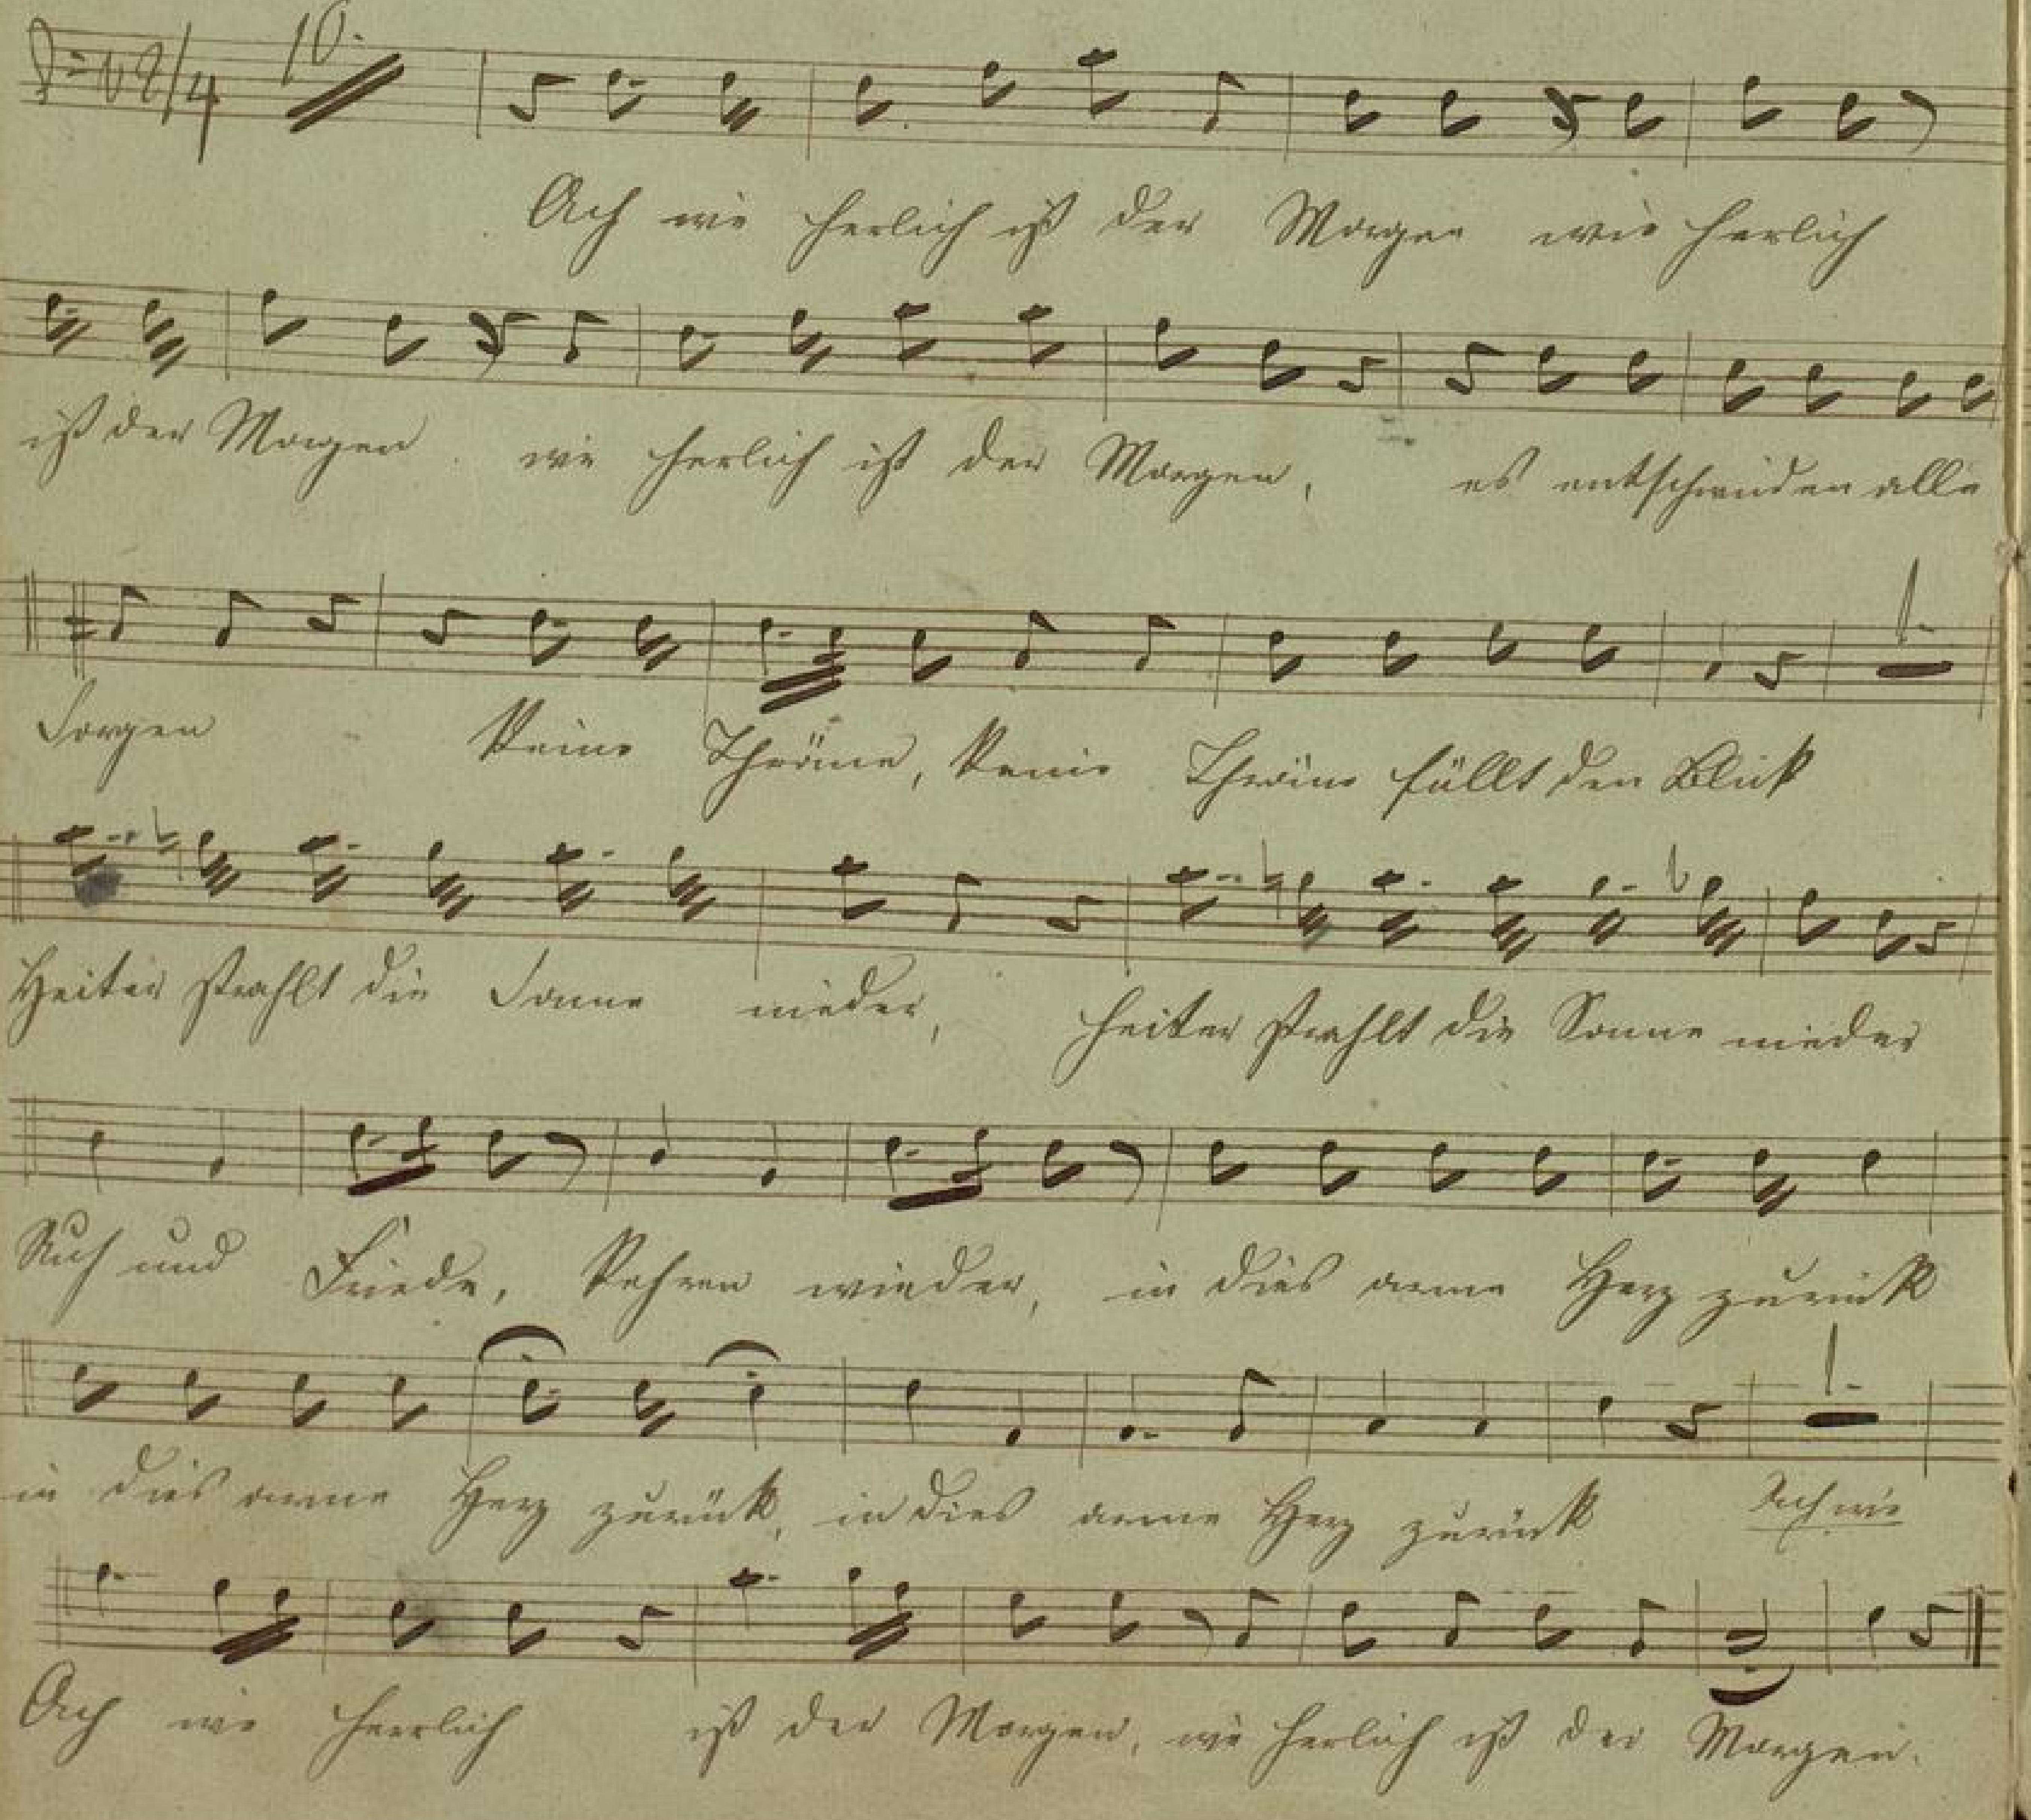 2/4 10.
Ach wie herlich ist der Morgen wie herlich
ist der Morgen. wie herlich ist der Morgen, es entschwinden alle
Sorgen Keine Thräne, Keine Thräne füllt den Blick
Heiter strahlt die Sonne nieder, heiter strahlt die Sonne nieder
Ruh und Friede, Kehren wieder, in dies arme Herz zurück
in dies arme Herz zurück, in dies arme Herz zurück Ach wie
Ach wie herrlich ist der Morgen, wie herlich ist der Morgen.